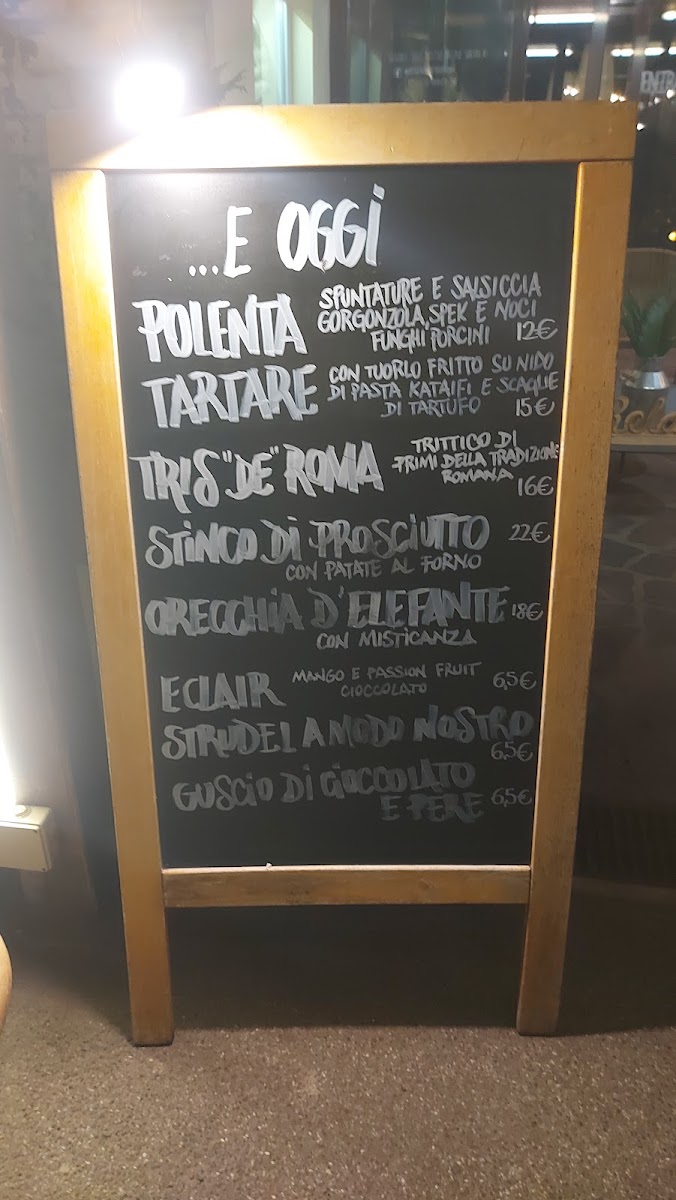 ...E OGGI
POLENTA SPUNTATURE E SALSICCIA
GORGONZOLA, SPEK E NOCI
FUNGHI PORCINI 12€
TARTARE CON TUORLO FRITTO SU NIDO
DI PASTA KATAIFI E SCAGLIE
DI TARTUFO 15€
TRIS "DE" ROMA TRITTICO DI
PRIMI DELLA TRADIZIONE
ROMANA 16€
STINCO DI PROSCIUTTO 22€
CON PATATE AL FORNO
ORECCHIA D'ELEFANTE 18€
CON MISTICANZA
ECLAIR MANGO E PASSION FRUIT
CIOCCOLATO 6,5€
STRUDEL A MODO NOSTRO
6,5€
GUSCIO DI CIOCCOLATO
E PERE 6,5€